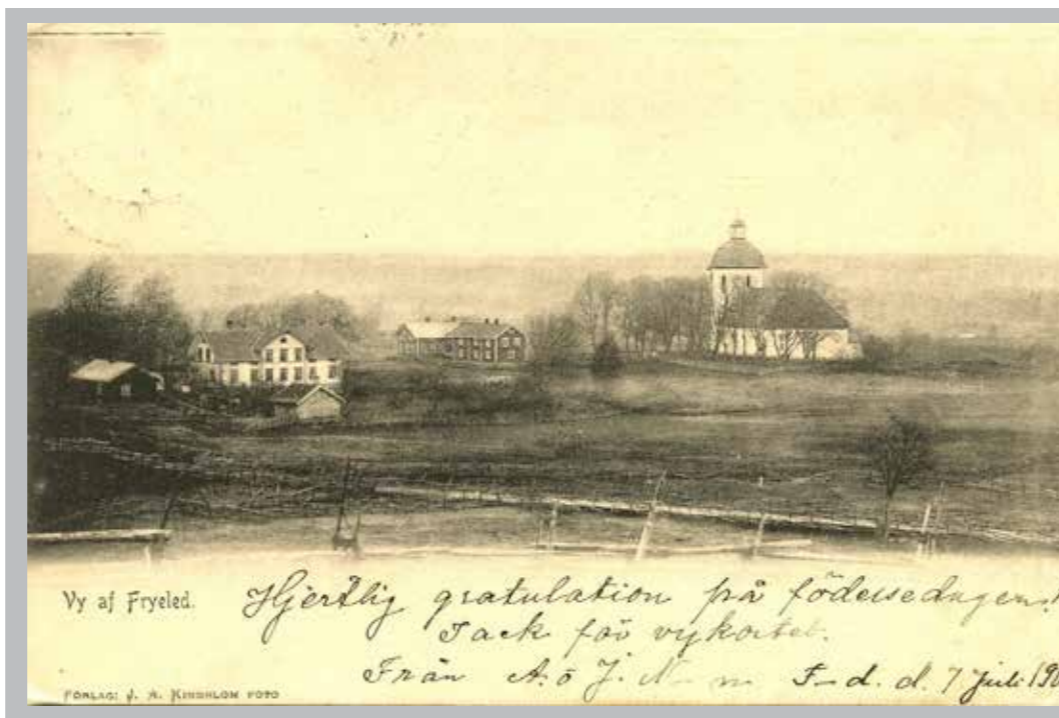 Vy af Fryeled.
Hjertlig gratulation på födelsedagen!
Tack för vykortet.
Från A. o J. N—n F—d. d. 7 juli 190
FÖRLAG: J. A. FOTO